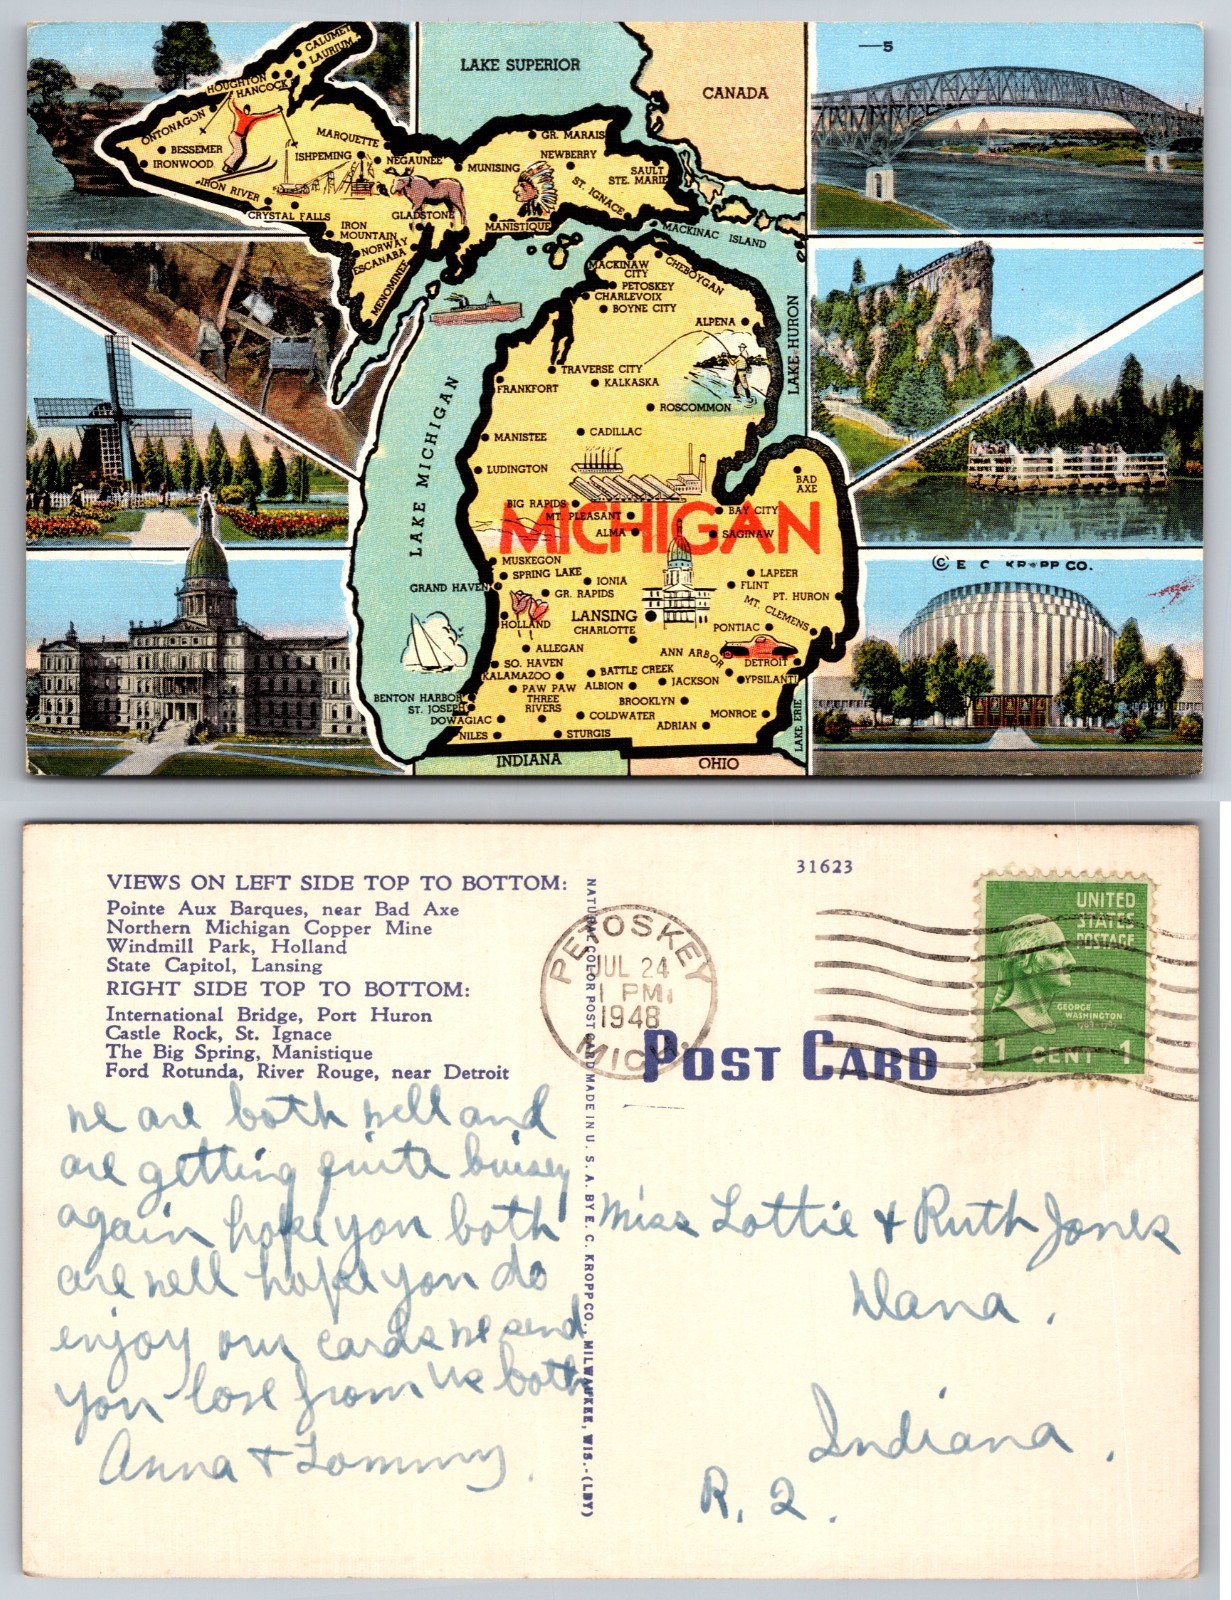 —5
LAKE SUPERIOR
CANADA
CALUMET
LAURIUM
HOUGHTON
HANCOCK
ONTONAGON
BESSEMER
IRONWOOD
MARQUETTE
ISHPEMING
NEGAUNEE
MUNISING
GR. MARAIS
NEWBERRY
SAULT
STE. MARIE
ST. IGNACE
IRON RIVER
CRYSTAL FALLS
IRON
MOUNTAIN
NORWAY
ESCANABA
GLADSTONE
MENOMINEE
MANISTIQUE
MACKINAC ISLAND
MACKINAW
CITY
CHEBOYGAN
PETOSKEY
CHARLEVOIX
BOYNE CITY
ALPENA
LAKE HURON
TRAVERSE CITY
KALKASKA
FRANKFORT
ROSCOMMON
LAKE MICHIGAN
MANISTEE
CADILLAC
LUDINGTON
BAD
AXE
BIG RAPIDS
MT. PLEASANT
BAY CITY
MICHIGAN
ALMA
SAGINAW
MUSKEGON
SPRING LAKE
GRAND HAVEN
IONIA
GR. RAPIDS
LAPEER
FLINT
PT. HURON
MT. CLEMENS
HOLLAND
LANSING
CHARLOTTE
PONTIAC
ALLEGAN
ANN ARBOR
DETROIT
SO. HAVEN
KALAMAZOO
BATTLE CREEK
ALBION
JACKSON
YPSILANTI
BENTON HARBOR
ST. JOSEPH
PAW PAW
THREE
RIVERS
BROOKLYN
DOWAGIAC
COLDWATER
MONROE
ADRIAN
NILES
STURGIS
LAKE ERIE
INDIANA
OHIO
© E. C. KROPP CO.
31623
VIEWS ON LEFT SIDE TOP TO BOTTOM:
Pointe Aux Barques, near Bad Axe
Northern Michigan Copper Mine
Windmill Park, Holland
State Capitol, Lansing
RIGHT SIDE TOP TO BOTTOM:
International Bridge, Port Huron
Castle Rock, St. Ignace
The Big Spring, Manistique
Ford Rotunda, River Rouge, near Detroit
we are both well and
are getting quite buisey
again hope you both
are well hope you do
enjoy our cards we send
you love from us both
Anna & Tommy.
NATURAL COLOR POST CARD MADE IN U. S. A. BY E. C. KROPP CO., MILWAUKEE, WIS.-(LBY)
PETOSKEY
JUL 24
1 PM
1948
MICH.
POST CARD
UNITED
STATES
POSTAGE
GEORGE
WASHINGTON
1 CENT 1
Miss Lottie & Ruth Jones
Dana.
Indiana.
R. 2.